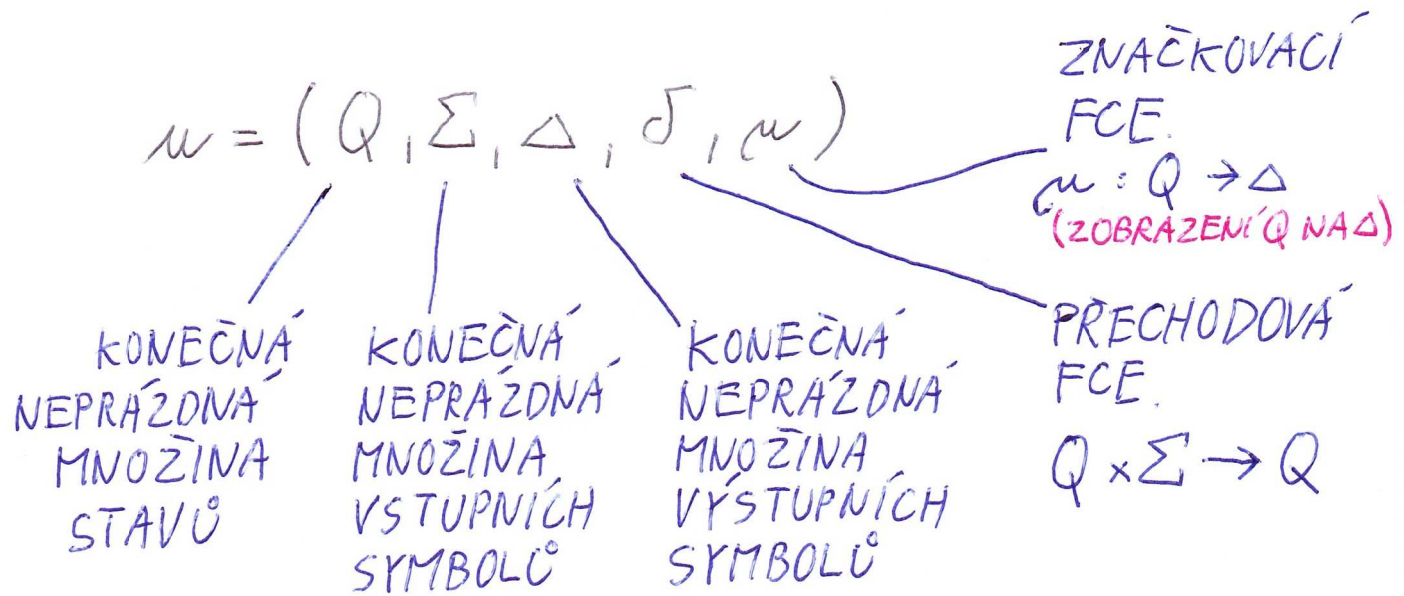 μ = (Q, Σ, Δ, δ, μ)
ZNAČKOVACÍ
FCE.
μ : Q → Δ
(ZOBRAZENÍ Q NA Δ)
KONEČNÁ
NEPRÁZDNÁ
MNOŽINA
STAVŮ
KONEČNÁ
NEPRÁZDNÁ
MNOŽINA
VSTUPNÍCH
SYMBOLŮ
KONEČNÁ
NEPRÁZDNÁ
MNOŽINA
VÝSTUPNÍCH
SYMBOLŮ
PŘECHODOVÁ
FCE.
Q × Σ → Q